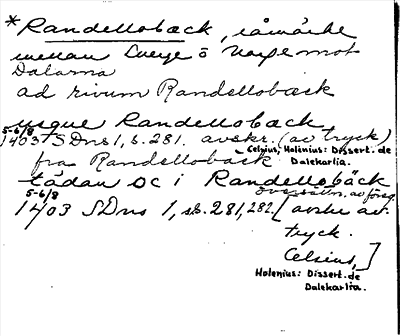 * Randellobæck, råmärke
mellan Sverge o Norge mot
Dalarna
ad rivum Randelloback
usque Randelloback
5-6/8
1403 SDns 1, s. 281. avskr. (av tryck)
Celsius, Holenius: Dissert. de
Dalekarlia.
från Randelloback
tådan oc i Randellobäck
5-6/8 översättn. av föreg.
1403 SDns 1, s. 281, 282. [avskr. av
tryck.
Celsius,]
Holenius: Dissert. de
Dalekarlia.